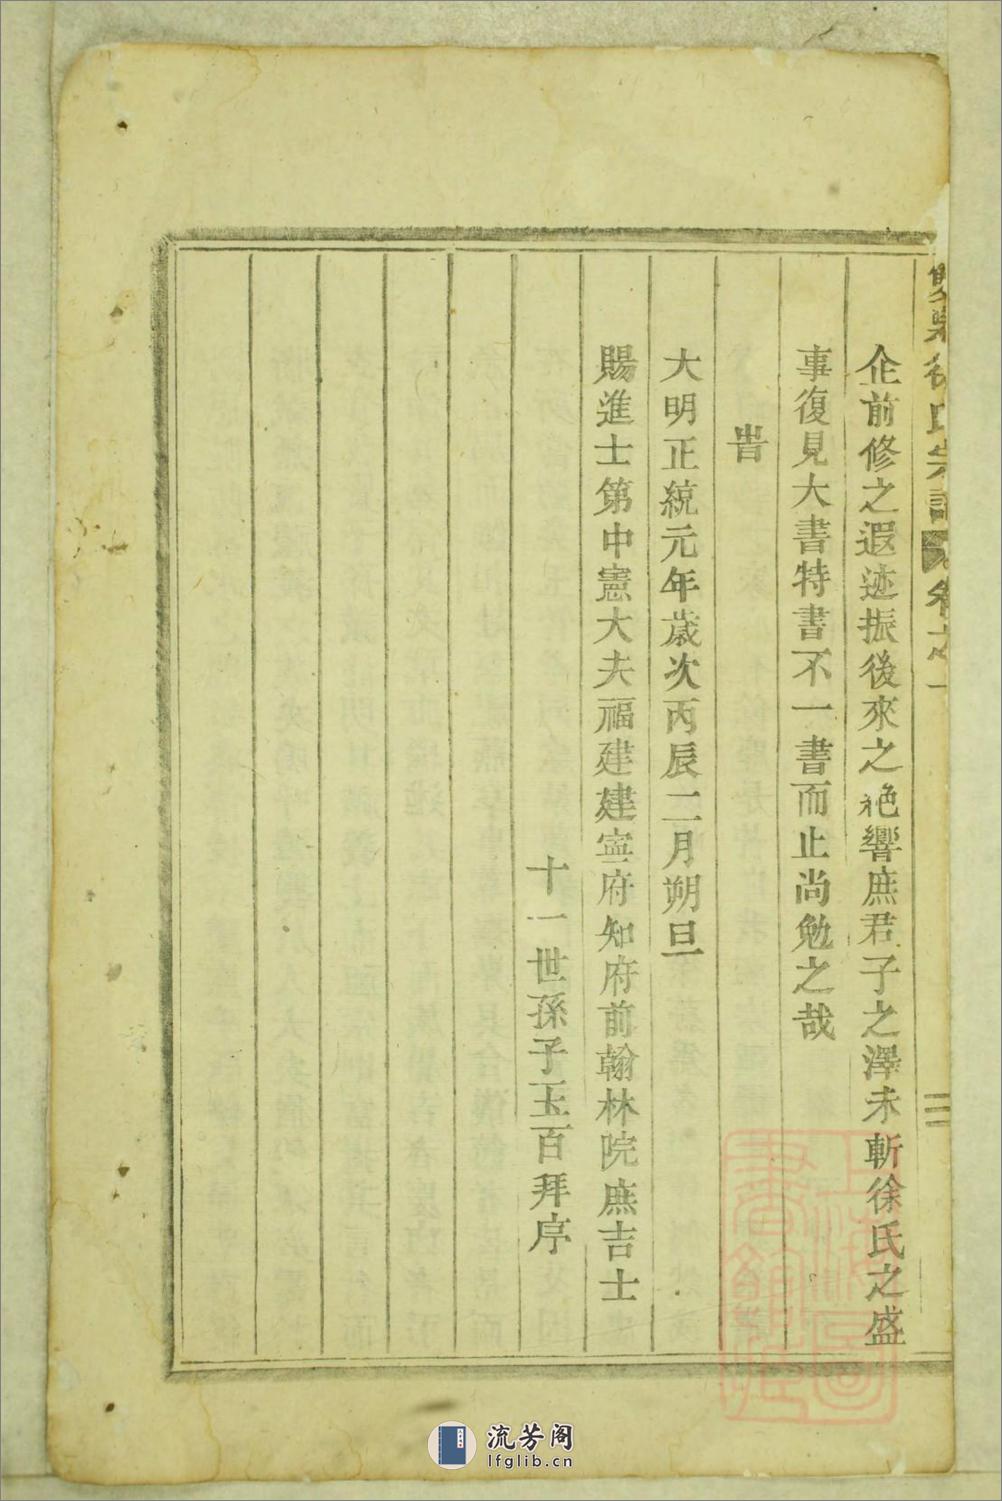 徐氏宗譜 卷之一 二
企前修之遐迹振後來之絶響庶君子之澤未斬徐氏之盛
事復見大書特書不一書而止尚勉之哉
旹
大明正統元年歲次丙辰二月朔旦
賜進士第中憲大夫福建建寧府知府前翰林院庶吉士
十一世孫子玉百拜序
上海圖書館藏
流芳阁
lfglib.cn